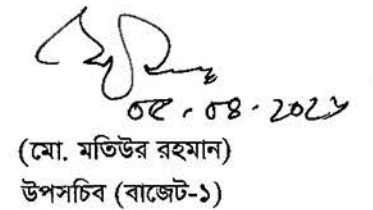 ০৫. ০৪. ২০২১
(মো. মতিউর রহমান)
উপসচিব (বাজেট-১)